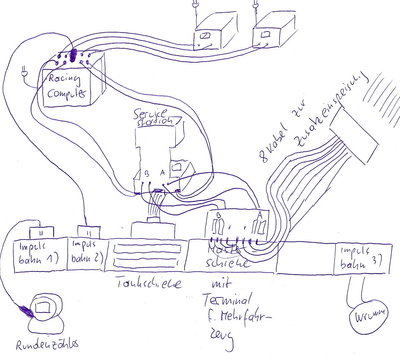 Racing
Computer
Service
station
B A
8 Kabel zur
Zusatzeinspeisung
B A
Impuls
bahn 1)
Impuls
bahn 2)
Tankschiene
schiene
mit
Terminal
f. Mehrfahr-
zeug
Impuls
bahn 3)
Rundenzähler